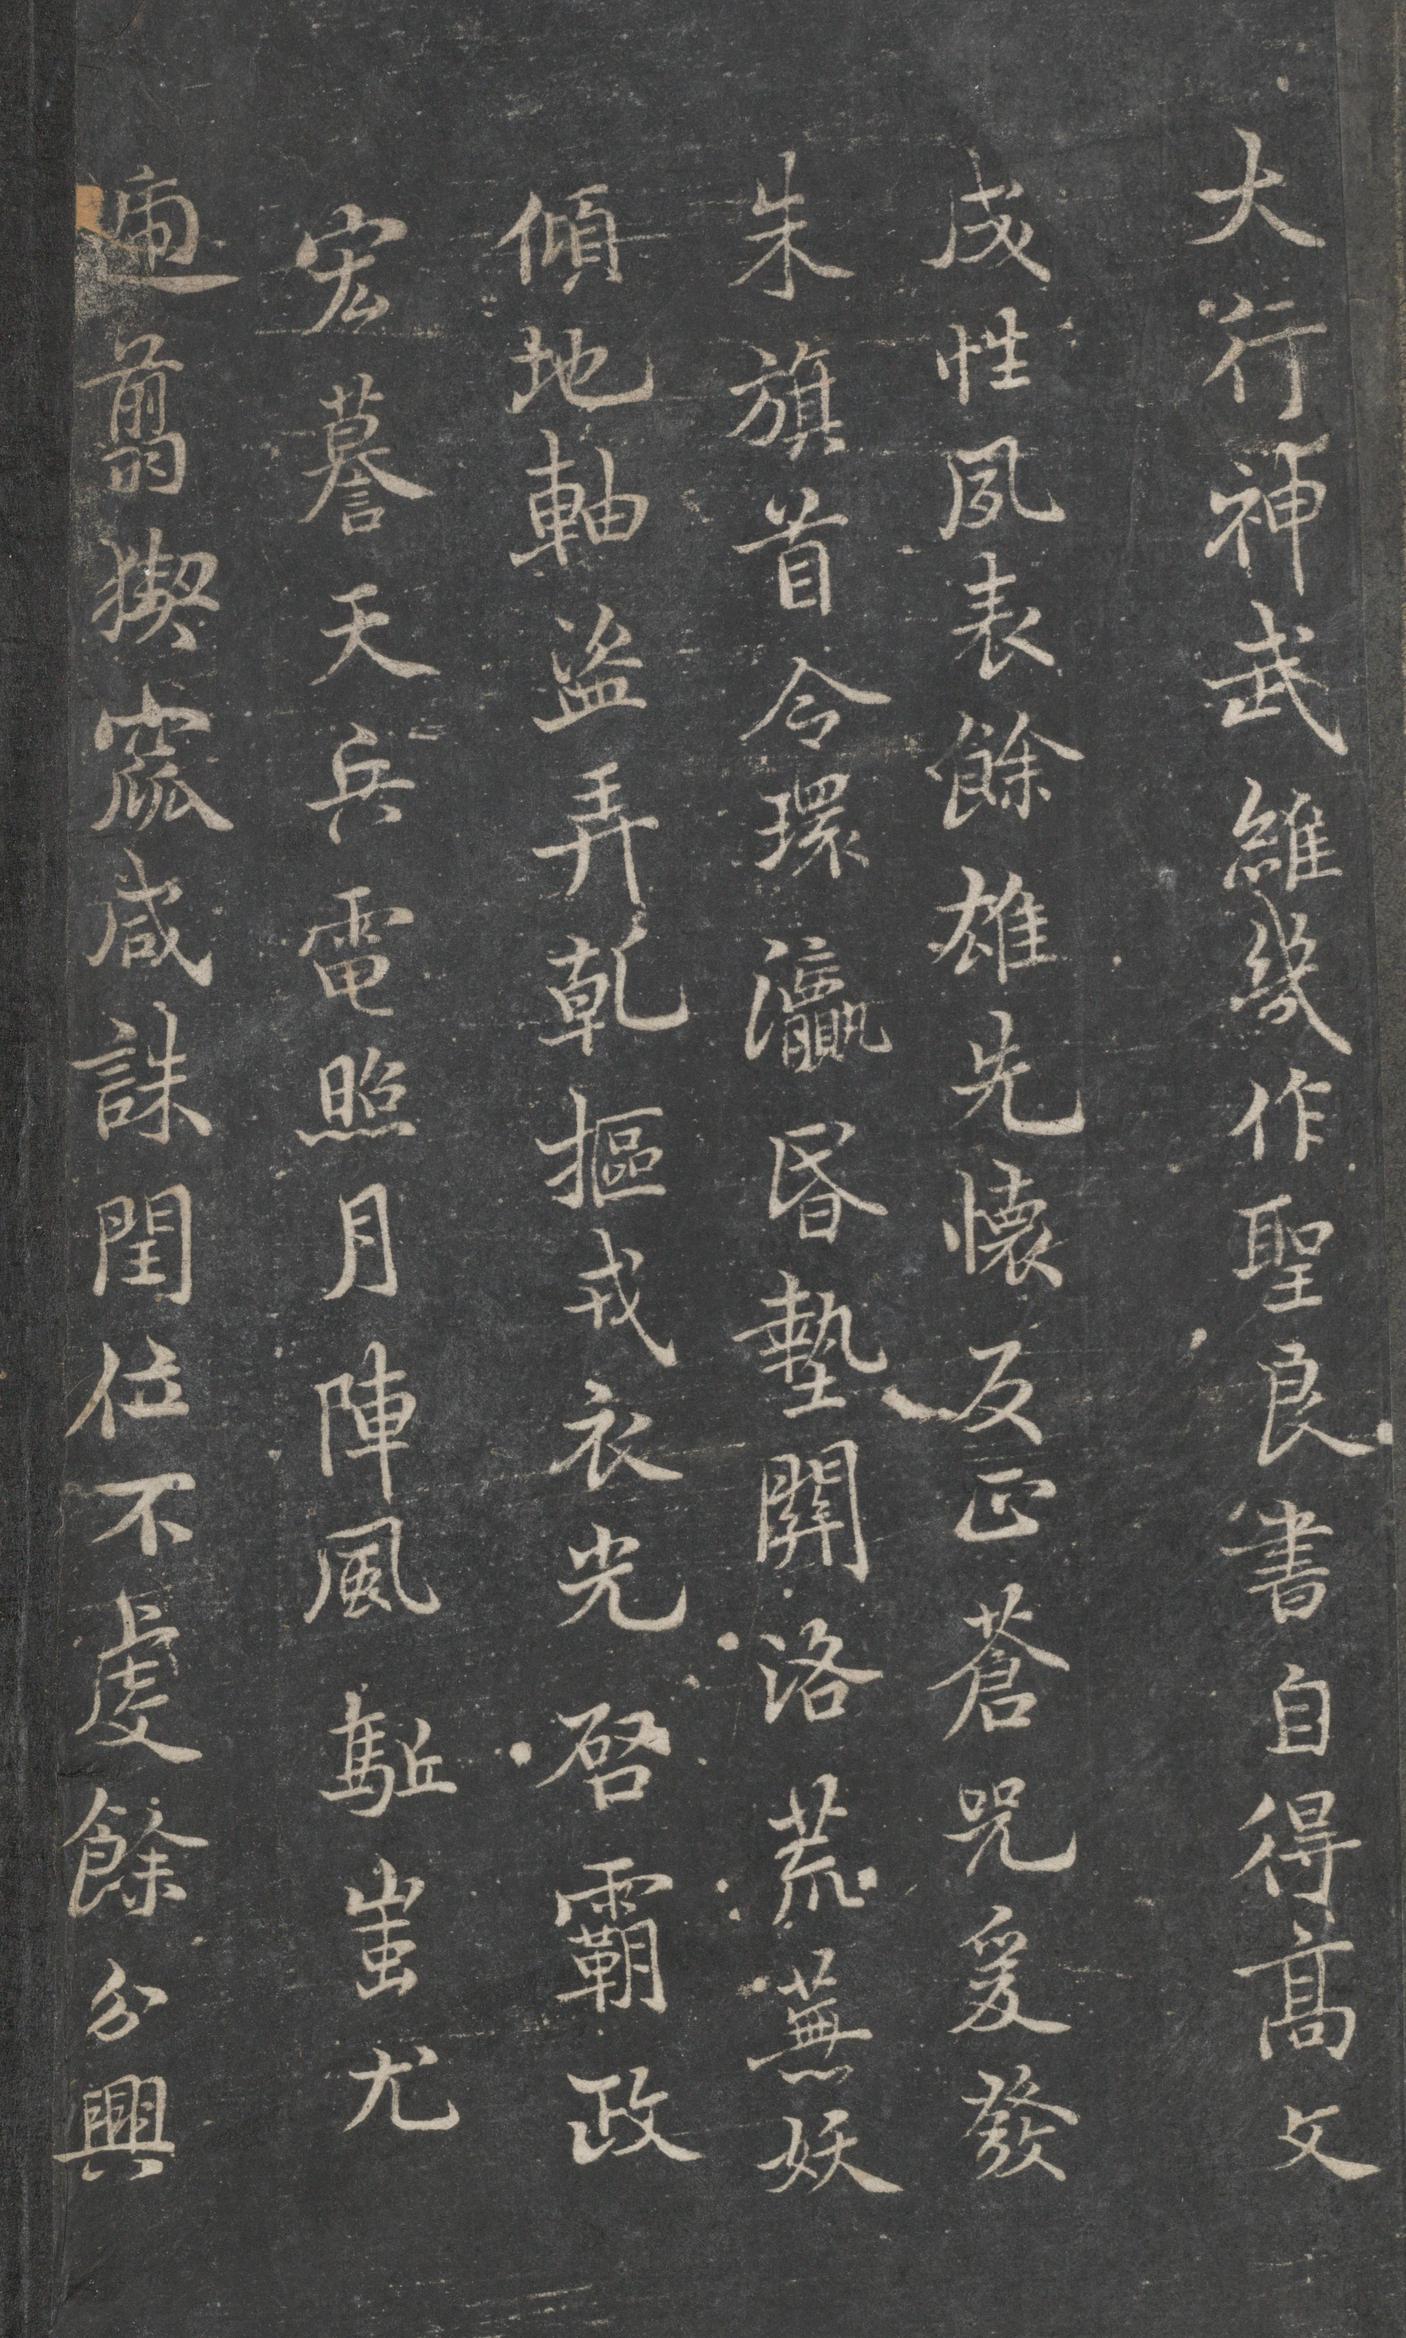 大行神武維幾作聖良書自得高文
成性夙表餘雄先懷反正蒼兕爰發
朱旗首令環瀛昏墊關洛荒蕪妖
傾地軸盜弄乾樞戎衣光啓霸政
宏謩天兵電照月陣風駈蚩尤
遄翦猰窳咸誅閏位不虔餘分興